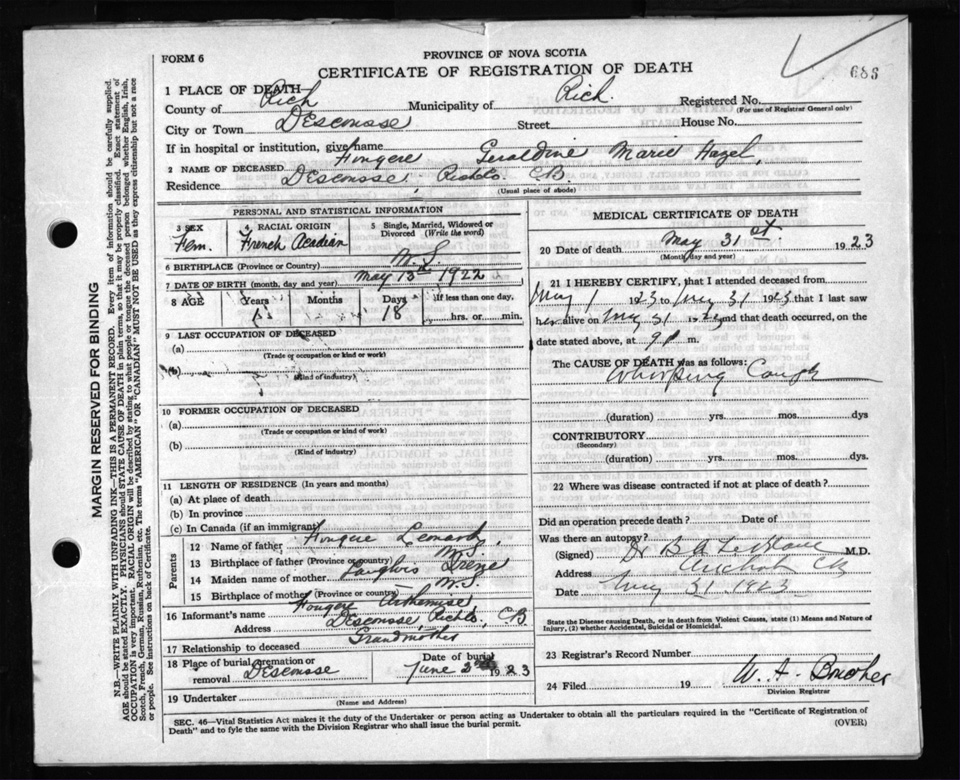 FORM 6
PROVINCE OF NOVA SCOTIA
CERTIFICATE OF REGISTRATION OF DEATH
686
1 PLACE OF DEATH—
County of Rich Municipality of Rich. Registered No.
(For use of Registrar General only)
City or Town Descousse Street House No.
If in hospital or institution, give name
2 NAME OF DECEASED Fougere Geraldine Marie Hazel,
Residence Descousse, Richto. CB.
(Usual place of abode)
PERSONAL AND STATISTICAL INFORMATION
3 SEX Fem. 4 RACIAL ORIGIN French Acadian 5 Single, Married, Widowed or Divorced (Write the word)
6 BIRTHPLACE (Province or Country) N.S.
7 DATE OF BIRTH (month, day and year) May 13th 1922
8 AGE Years 1 Months Days 18 If less than one day, hrs. or min.
9 LAST OCCUPATION OF DECEASED
(a)
(Trade or occupation or kind of work)
(b)
(Kind of industry)
10 FORMER OCCUPATION OF DECEASED
(a)
(Trade or occupation or kind of work)
(b)
(Kind of industry)
11 LENGTH OF RESIDENCE (In years and months)
(a) At place of death
(b) In province
(c) In Canada (if an immigrant)
Parents
12 Name of father Fougere Leonard,
13 Birthplace of father (Province or country) N.S.
14 Maiden name of mother Langlois Irene
15 Birthplace of mother (Province or country) N.S.
16 Informant's name Fougere Arthemise
Address Descousse Richto, CB.
17 Relationship to deceased Grandmother
18 Place of burial, cremation or removal Descousse Date of burial June 2nd 1923
19 Undertaker
(Name and Address)
MEDICAL CERTIFICATE OF DEATH
20 Date of death May 31st. 1923
(Month, day and year)
21 I HEREBY CERTIFY, that I attended deceased from
May 1 1923 to May 31 1923 that I last saw
her alive on May 31 1923 and that death occurred, on
date stated above, at 9 P m.
The CAUSE OF DEATH was as follows:
Whooping Cough
(duration) yrs. mos. dys
CONTRIBUTORY
(Secondary)
(duration) yrs. mos. dys.
22 Where was disease contracted if not at place of death?
Did an operation precede death? Date of
Was there an autopsy?
(Signed) Dr B A LeBlanc M.D.
Address Arichat CB
Date May 31 1923
State the Disease causing Death, or in death from Violent Causes, state (1) Means and Nature of Injury, (2) whether Accidental, Suicidal or Homicidal.
23 Registrar's Record Number
24 Filed 19 W. A.
Division Registrar
SEC. 46—Vital Statistics Act makes it the duty of the Undertaker or person acting as Undertaker to obtain all the particulars required in the "Certificate of Registration of
Death" and to fyle the same with the Division Registrar who shall issue the burial permit. (OVER)
MARGIN RESERVED FOR BINDING
N.B.—WRITE PLAINLY WITH UNFADING INK—THIS IS A PERMANENT RECORD. Every item of information should be carefully supplied.
AGE should be stated EXACTLY. PHYSICIANS should STATE CAUSE OF DEATH in plain terms, so that it may be properly classified. Exact statement of
OCCUPATION is very important. RACIAL ORIGIN will be described by stating to what people or tongue the deceased person belonged whether English, Irish,
Scotch, French, German, Russian, Ruthenian, etc. The terms "AMERICAN" OR "CANADIAN" MUST NOT BE USED as they express citizenship but not a race
or people. See instructions on back of Certificate.